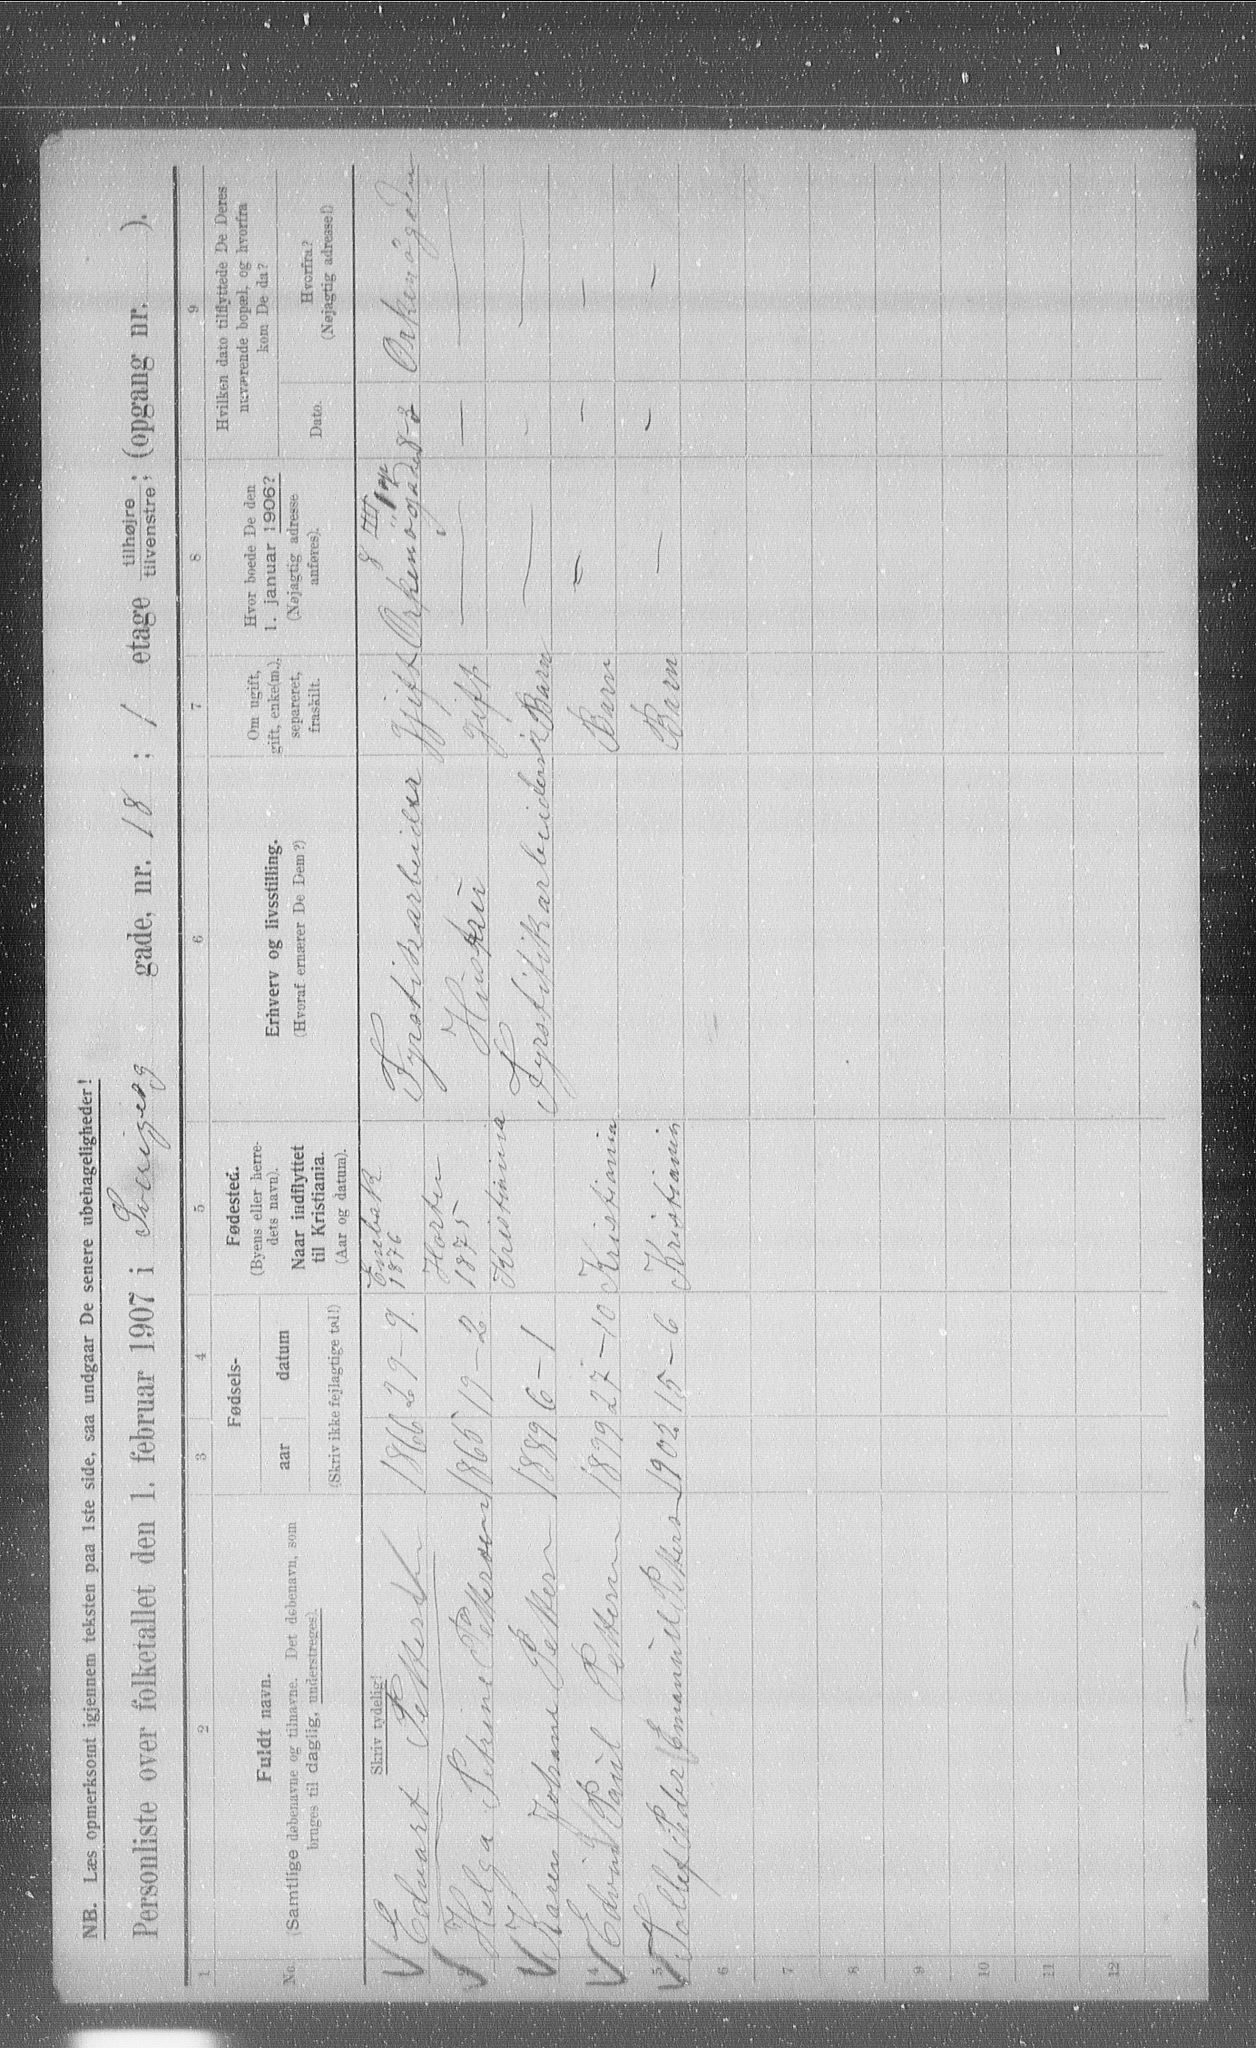 NB. Læs opmerksomt igjennem teksten paa 1ste side, saa undgaar De senere ubehageligheder!
Personliste over folketallet den 1. februar 1907 i gade, nr. 18 ; 1 etage tilhøjre tilvenstre ; (opgang nr. ).
1 2 3 4 5 6 7 8 9
No. Fuldt navn. (Samtlige døbenavne og tilnavne. Det døbenavn, som bruges til daglig, understreges).
Fødsels-
aar datum
(Skriv ikke fejlagtige tal!)
Fødested. (Byens eller herredets navn). Naar indflyttet til Kristiania. (Aar og datum).
Erhverv og livsstilling. (Hvoraf ernærer De Dem?)
Om ugift, gift, enke(m.), separeret, fraskilt.
Hvor boede De den 1. januar 1906? (Nøjagtig adresse anføres).
Hvilken dato tilflyttede De Deres nuværende bopæl, og hvorfra kom De da?
Dato. Hvorfra? (Nøjagtig adresse!)
Skriv tydelig!
Edvart 1866 29-9. Enebak 1876 Fyrstikarbeider Gift
Helga Petrine Pettersen 1865 19-2 Horten 1875 Husfru gift — — —
Karen Johane Pettersen 1889 6-1 Kristiania Fyrstikarbeiderske Barn — - —
4 Edvin Paul Pettersen 1899 27-10 Kristiania Barn — - —
5 Peder Emanuel Petters 1902 15-6 Kristiania Barn — - —
6
7
8
9
10
11
12